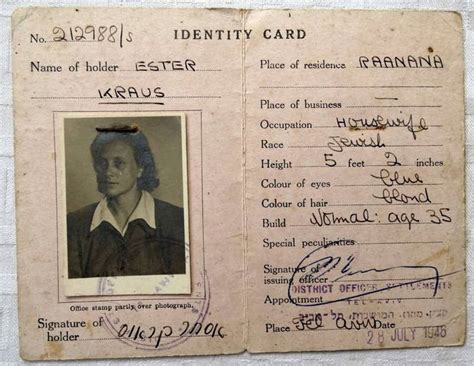 No. 212988/s
IDENTITY CARD
Name of holder ESTER
KRAUS
Office stamp partly over photograph.
Signature of holder אסתר קראוס
Place of residence RAANANA
Place of business —
Occupation Housewife
Race Jewish
Height 5 feet 2 inches
Colour of eyes blue
Colour of hair blond
Build Normal: age 35
Special peculiarities
Signature of issuing officer
DISTRICT OFFICER SETTLEMENTS
Appointment TEL-AVIV
תל-אביב
Place Tel Aviv Date 28 JULY 1946